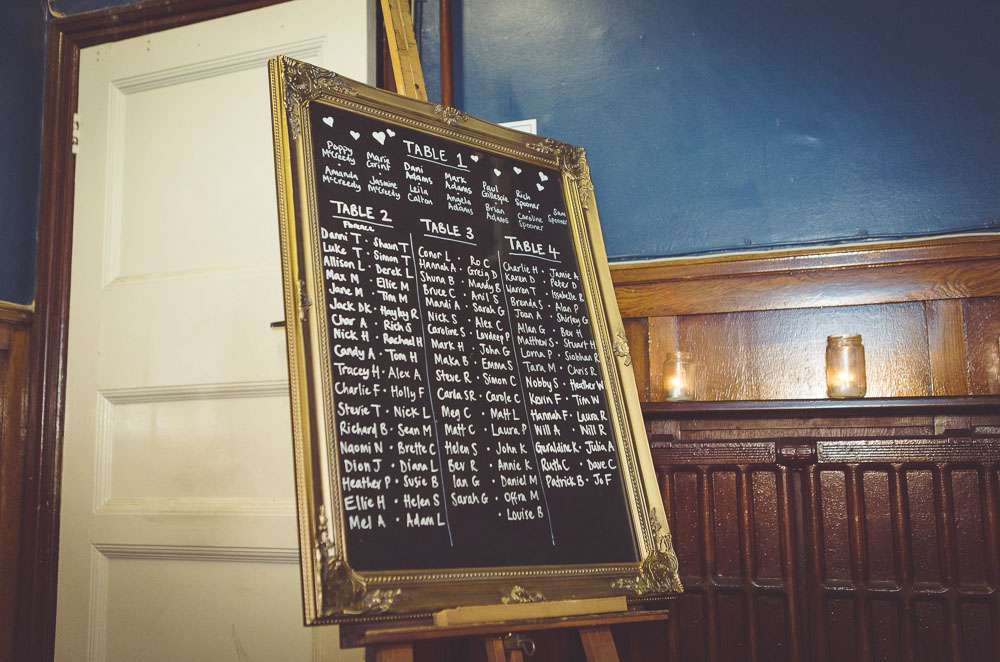 TABLE 1
Poppy McCreedy
Marie Corint
Dani Adams
Mark Adams
Paul Gillespie
Rich Spooner
Sam Spooner
Amanda McCreedy
Jasmine McCreedy
Leila Calton
Angela Adams
Brian Adams
Caroline Spooner
TABLE 2
Florence
Danni T · Shaun T
Luke T · Simon T
Allison L · Derek L
Max M · Ellie M
Jane M · Tim M
Jack DK · Hayley R
Char A · Rich S
Nick H · Rachael H
Candy A · Tom H
Tracey H · Alex A
Charlie F · Holly F
Stevie T · Nick L
Richard B · Sean M
Naomi N · Brette C
Dion J · Diana L
Heather P · Susie B
Ellie H · Helen S
Mel A · Adam L
TABLE 3
Conor L · Ro C
Hannah A · Greig D
Shuna B · Mandy B
Bruce C · Anil S
Mandi A · Sarah G
Nick S · Alex C
Caroline S · Lovdeep P
Mark H · John G
Maka B · Emma S
Steve R · Simon C
Carla SR · Carole C
Meg C · Matt L
Matt C · Laura P
Helen S · John K
Bev R · Annie K
Ian G · Daniel M
Sarah G · Offra M
· Louise B
TABLE 4
Charlie H · Jamie A
Karen D · Peter D
Warren T · Issabelle B
Brenda S · Alan P
Joan A · Shirley G
Allan G · Bev H
Matthew S · Stuart H
Lorna P · Siobhan R
Tara M · Chris R
Nobby S · Heather W
Kevin F · Tim W
Hannah F · Laura R
Will A · Will R
Geraldine K · Julia A
Ruth C · Dave C
Patrick B · Jo F